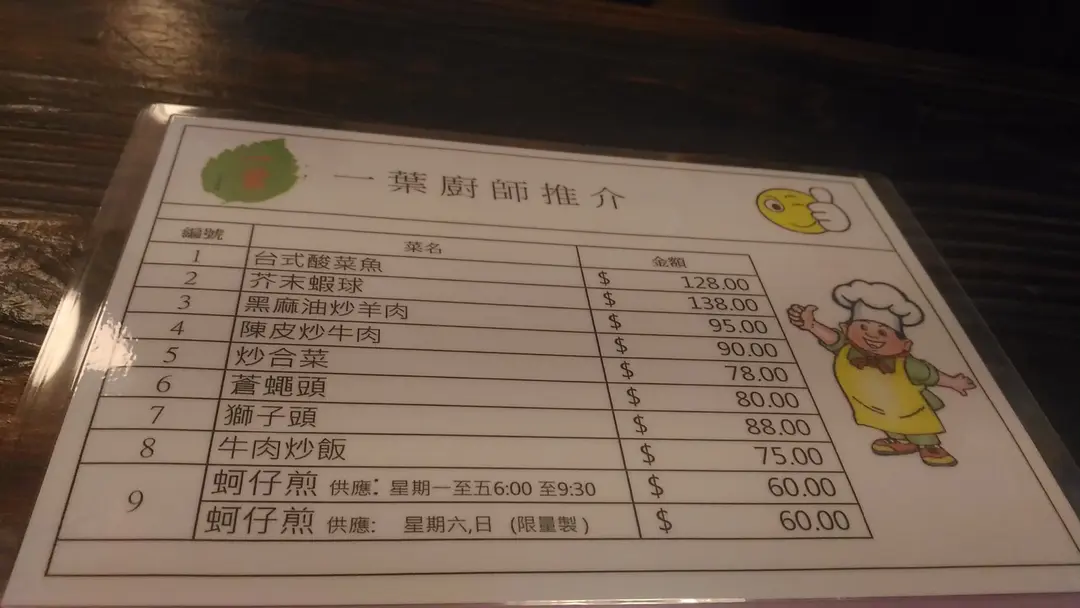 一葉廚師推介
編號 菜名 金額
1 台式酸菜魚 $ 128.00
2 芥末蝦球 $ 138.00
3 黑麻油炒羊肉 $ 95.00
4 陳皮炒牛肉 $ 90.00
5 炒合菜 $ 78.00
6 蒼蠅頭 $ 80.00
7 獅子頭 $ 88.00
8 牛肉炒飯 $ 75.00
9 蚵仔煎 供應: 星期一至五6:00 至9:30 $ 60.00
蚵仔煎 供應: 星期六,日 (限量製) $ 60.00